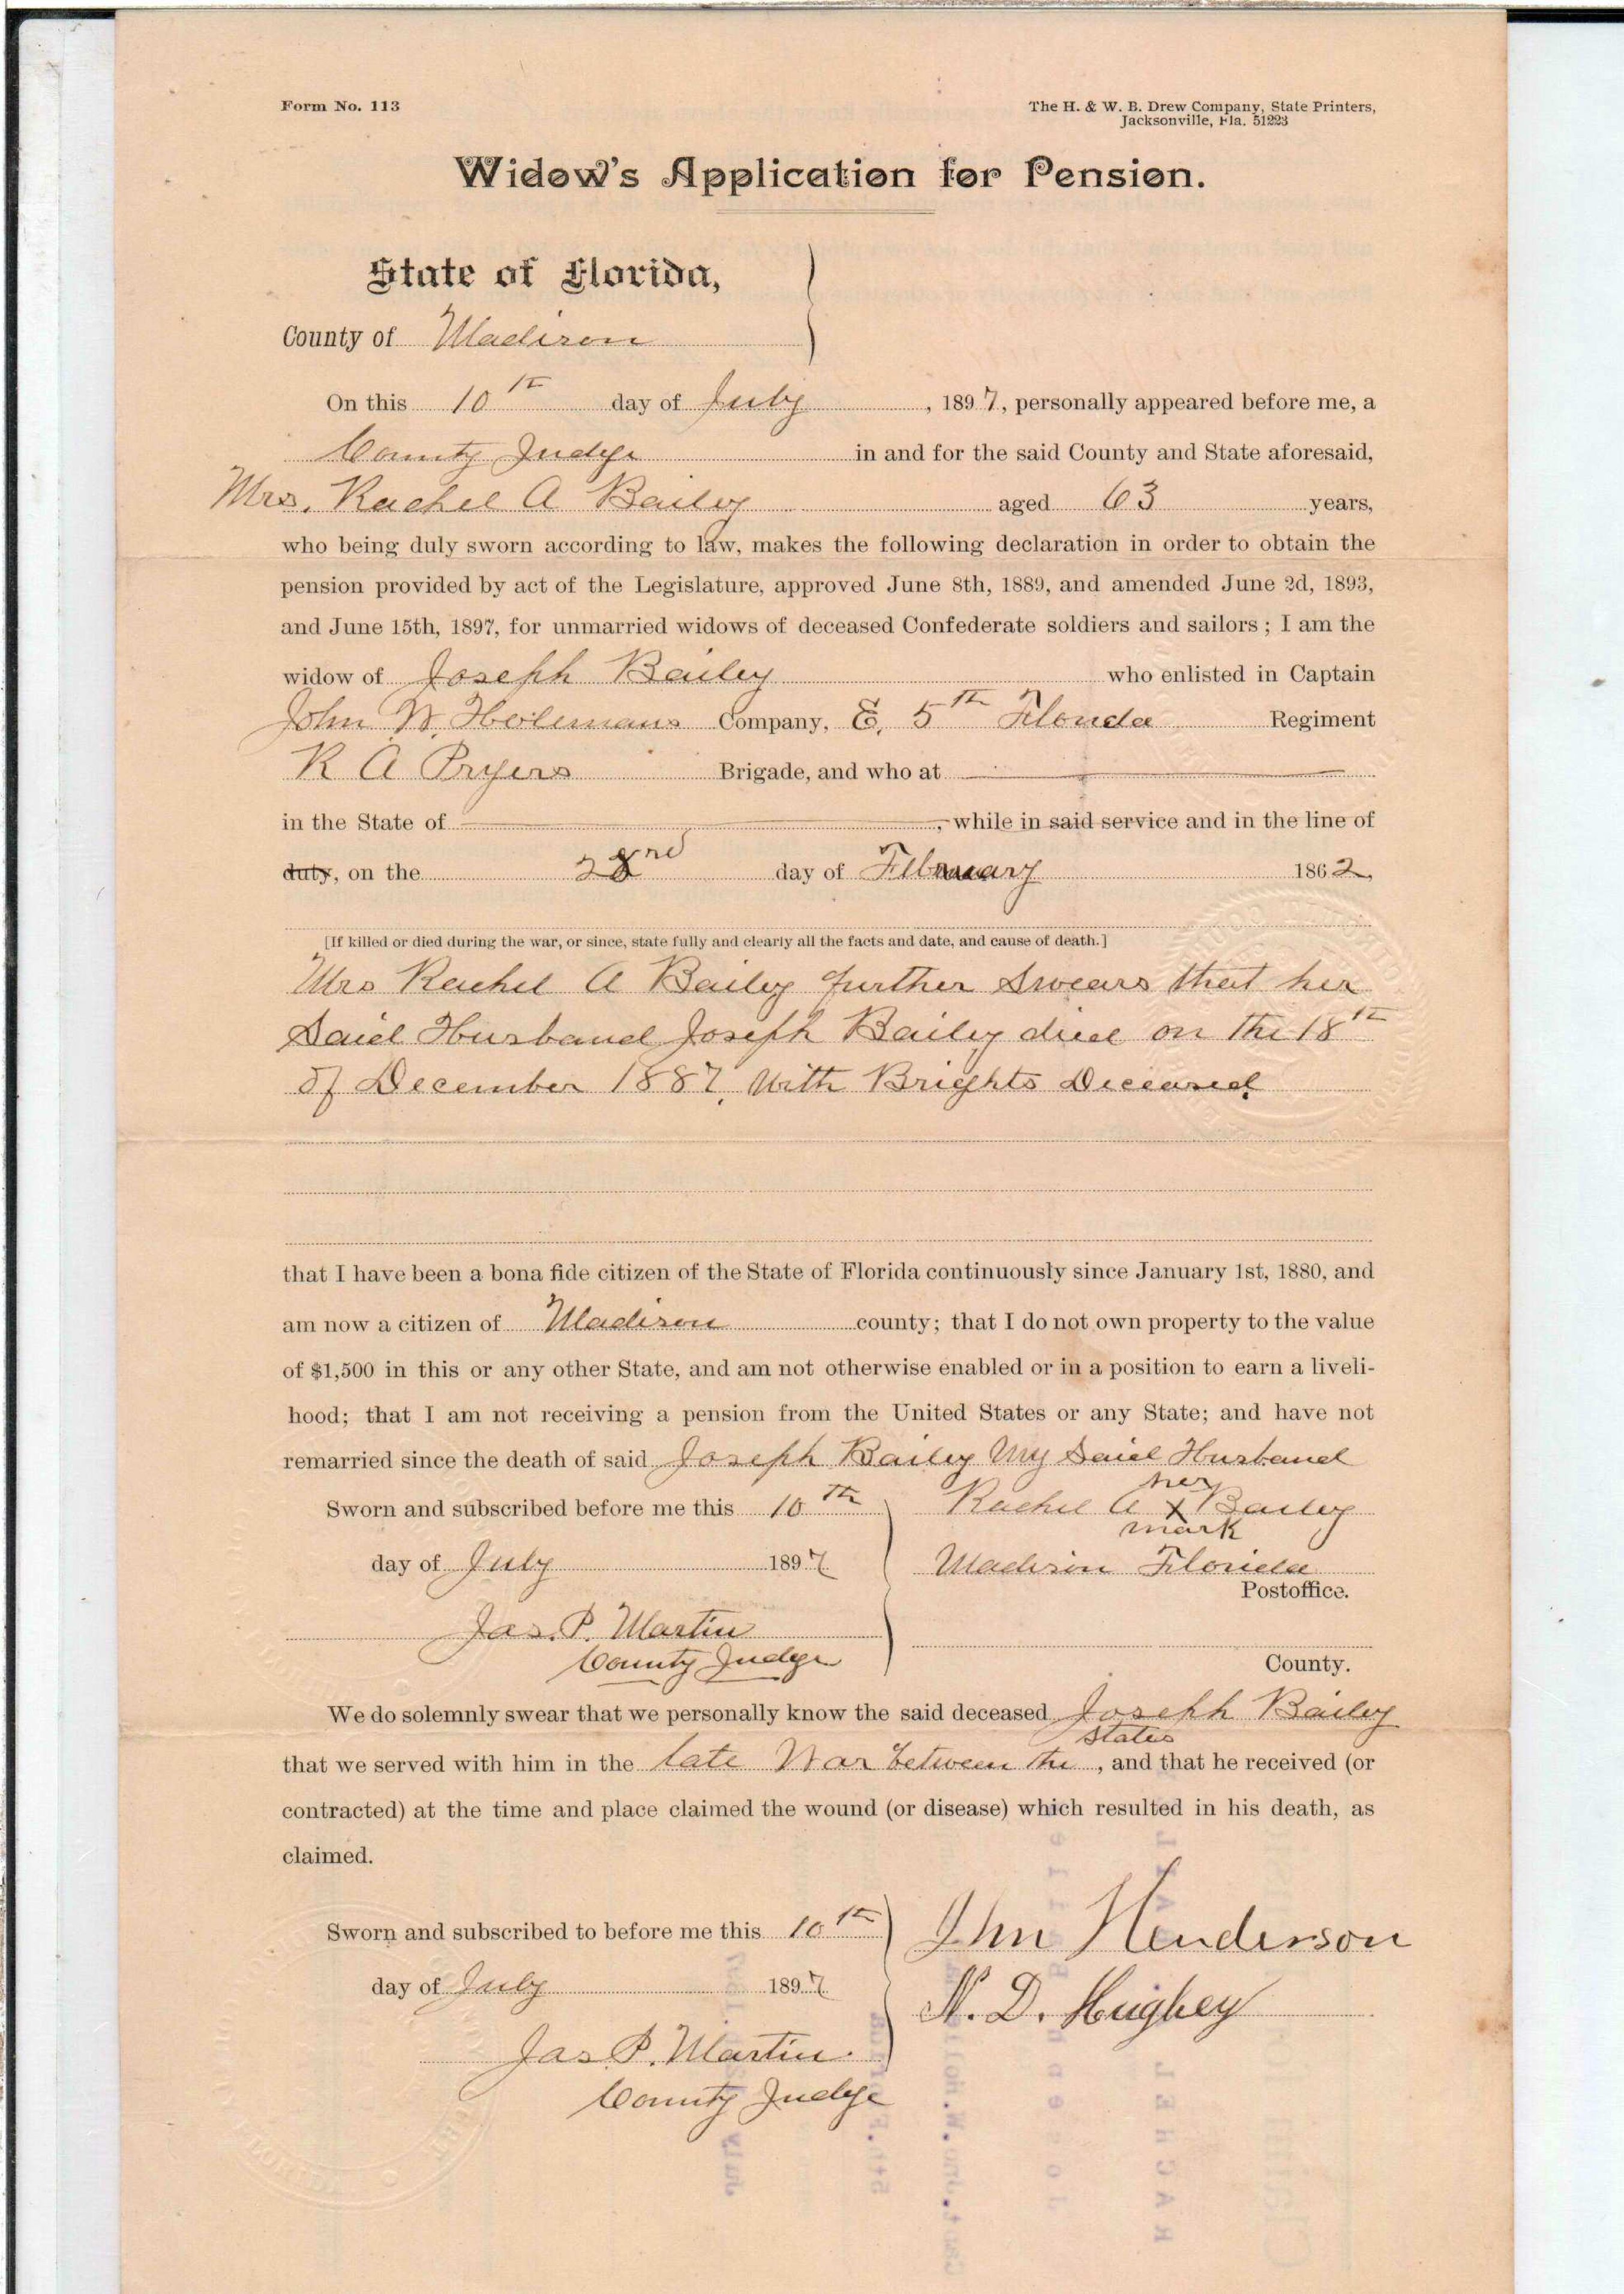 Form No. 113
The H. & W. B. Drew Company, State Printers,
Jacksonville, Fla. 51223
Widow's Application for Pension.
State of Florida,
County of Madison
On this 10th day of July, 1897, personally appeared before me, a
County Judge in and for the said County and State aforesaid,
Mrs. Rachel A Bailey aged 63 years,
who being duly sworn according to law, makes the following declaration in order to obtain the
pension provided by act of the Legislature, approved June 8th, 1889, and amended June 2d, 1893,
and June 15th, 1897, for unmarried widows of deceased Confederate soldiers and sailors; I am the
widow of Joseph Bailey who enlisted in Captain
John W. Holemans Company, E, 5th Florida Regiment
R A Pryers Brigade, and who at
in the State of , while in said service and in the line of
duty, on the day of February 1862,
[If killed or died during the war, or since, state fully and clearly all the facts and date, and cause of death.]
Mrs Rachel A Bailey further Swears that her
Said Husband Joseph Bailey died on the 18th
of December 1887, With Brights Deceased.
that I have been a bona fide citizen of the State of Florida continuously since January 1st, 1880, and
am now a citizen of Madison county; that I do not own property to the value
of $1,500 in this or any other State, and am not otherwise enabled or in a position to earn a liveli-
hood; that I am not receiving a pension from the United States or any State; and have not
remarried since the death of said Joseph Bailey My Said Husband
her
Sworn and subscribed before me this 10th Rachel A X Bailey
mark
day of July 1897 Madison Florida
Postoffice.
Jas. P. Martin
County Judge
County.
We do solemnly swear that we personally know the said deceased Joseph Bailey
States
that we served with him in the late War between the, and that he received (or
contracted) at the time and place claimed the wound (or disease) which resulted in his death, as
claimed.
Sworn and subscribed to before me this 10th Jhn Henderson
day of July 1897 N. D. Hughey
Jas. P. Martin.
County Judge